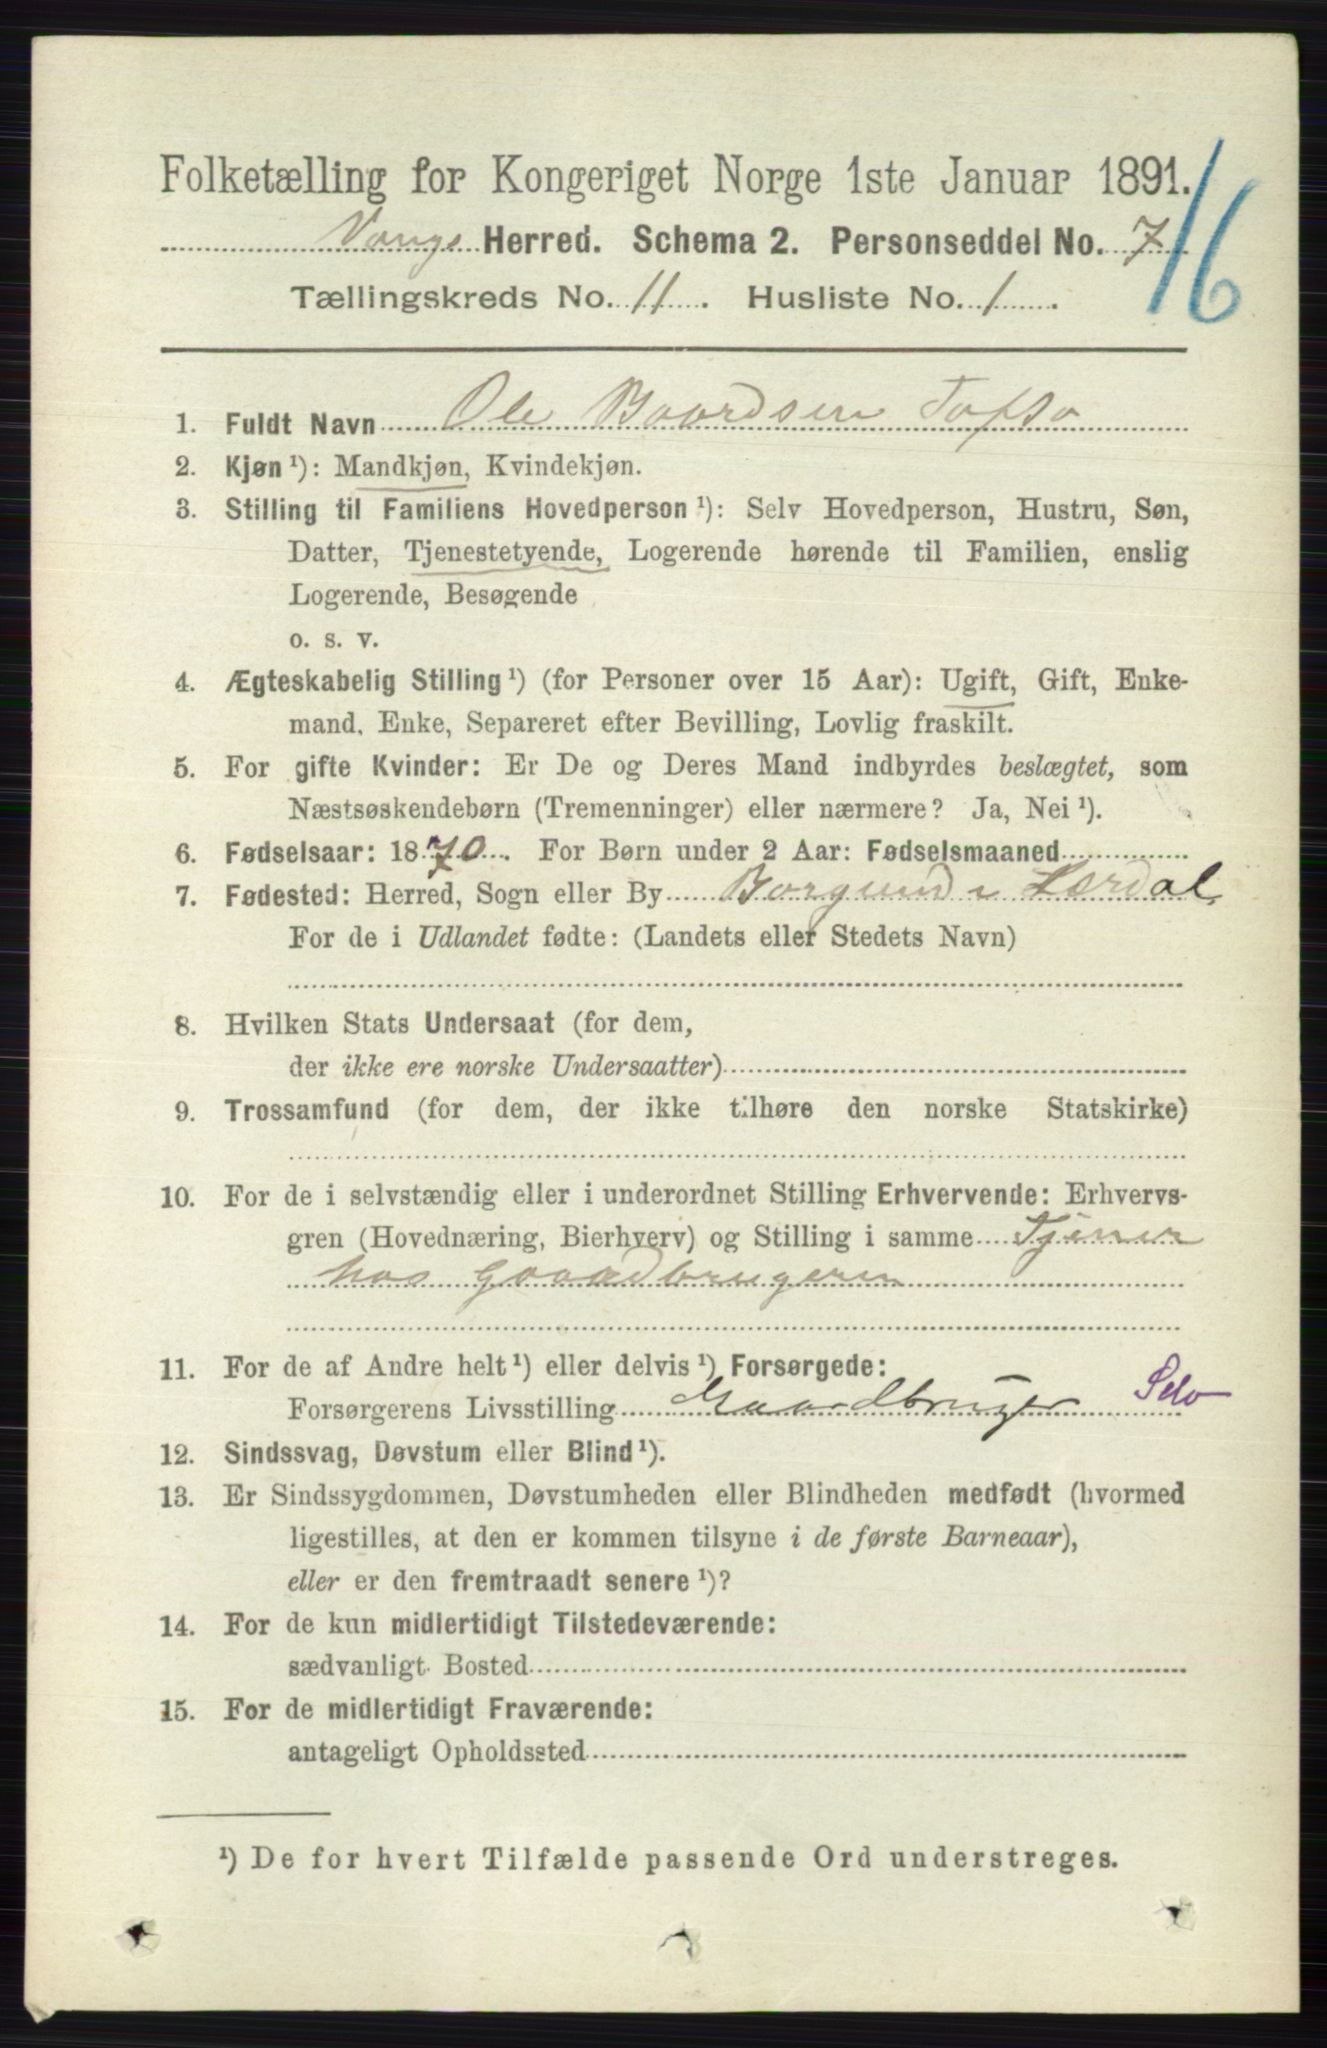 Folketælling for Kongeriget Norge 1ste Januar 1891.
Vangs Herred. Schema 2. Personseddel No. 7
16
Tællingskreds No. 11. Husliste No. 1.
1. Fuldt Navn Ole Baardsen
2. Kjøn ¹): Mandkjøn, Kvindekjøn.
3. Stilling til Familiens Hovedperson ¹): Selv Hovedperson, Hustru, Søn,
Datter, Tjenestetyende, Logerende hørende til Familien, enslig
Logerende, Besøgende
o. s. v.
4. Ægteskabelig Stilling ¹) (for Personer over 15 Aar): Ugift, Gift, Enke-
mand, Enke, Separeret efter Bevilling, Lovlig fraskilt.
5. For gifte Kvinder: Er De og Deres Mand indbyrdes beslægtet, som
Næstsøskendebørn (Tremenninger) eller nærmere? Ja, Nei ¹).
6. Fødselsaar: 1870. For Børn under 2 Aar: Fødselsmaaned
7. Fødested: Herred, Sogn eller By Borgund i Lærdal
For de i Udlandet fødte: (Landets eller Stedets Navn)
8. Hvilken Stats Undersaat (for dem,
der ikke ere norske Undersaatter)
9. Trossamfund (for dem, der ikke tilhøre den norske Statskirke)
10. For de i selvstændig eller i underordnet Stilling Erhvervende: Erhvervs-
gren (Hovednæring, Bierhverv) og Stilling i samme Tjener
hos Gaardbrugeren
11. For de af Andre helt ¹) eller delvis ¹) Forsørgede:
Forsørgerens Livsstilling Gaardbruger Selv
12. Sindssvag, Døvstum eller Blind ¹).
13. Er Sindssygdommen, Døvstumheden eller Blindheden medfødt (hvormed
ligestilles, at den er kommen tilsyne i de første Barneaar),
eller er den fremtraadt senere ¹)?
14. For de kun midlertidigt Tilstedeværende:
sædvanligt Bosted
15. For de midlertidigt Fraværende:
antageligt Opholdssted
¹) De for hvert Tilfælde passende Ord understreges.